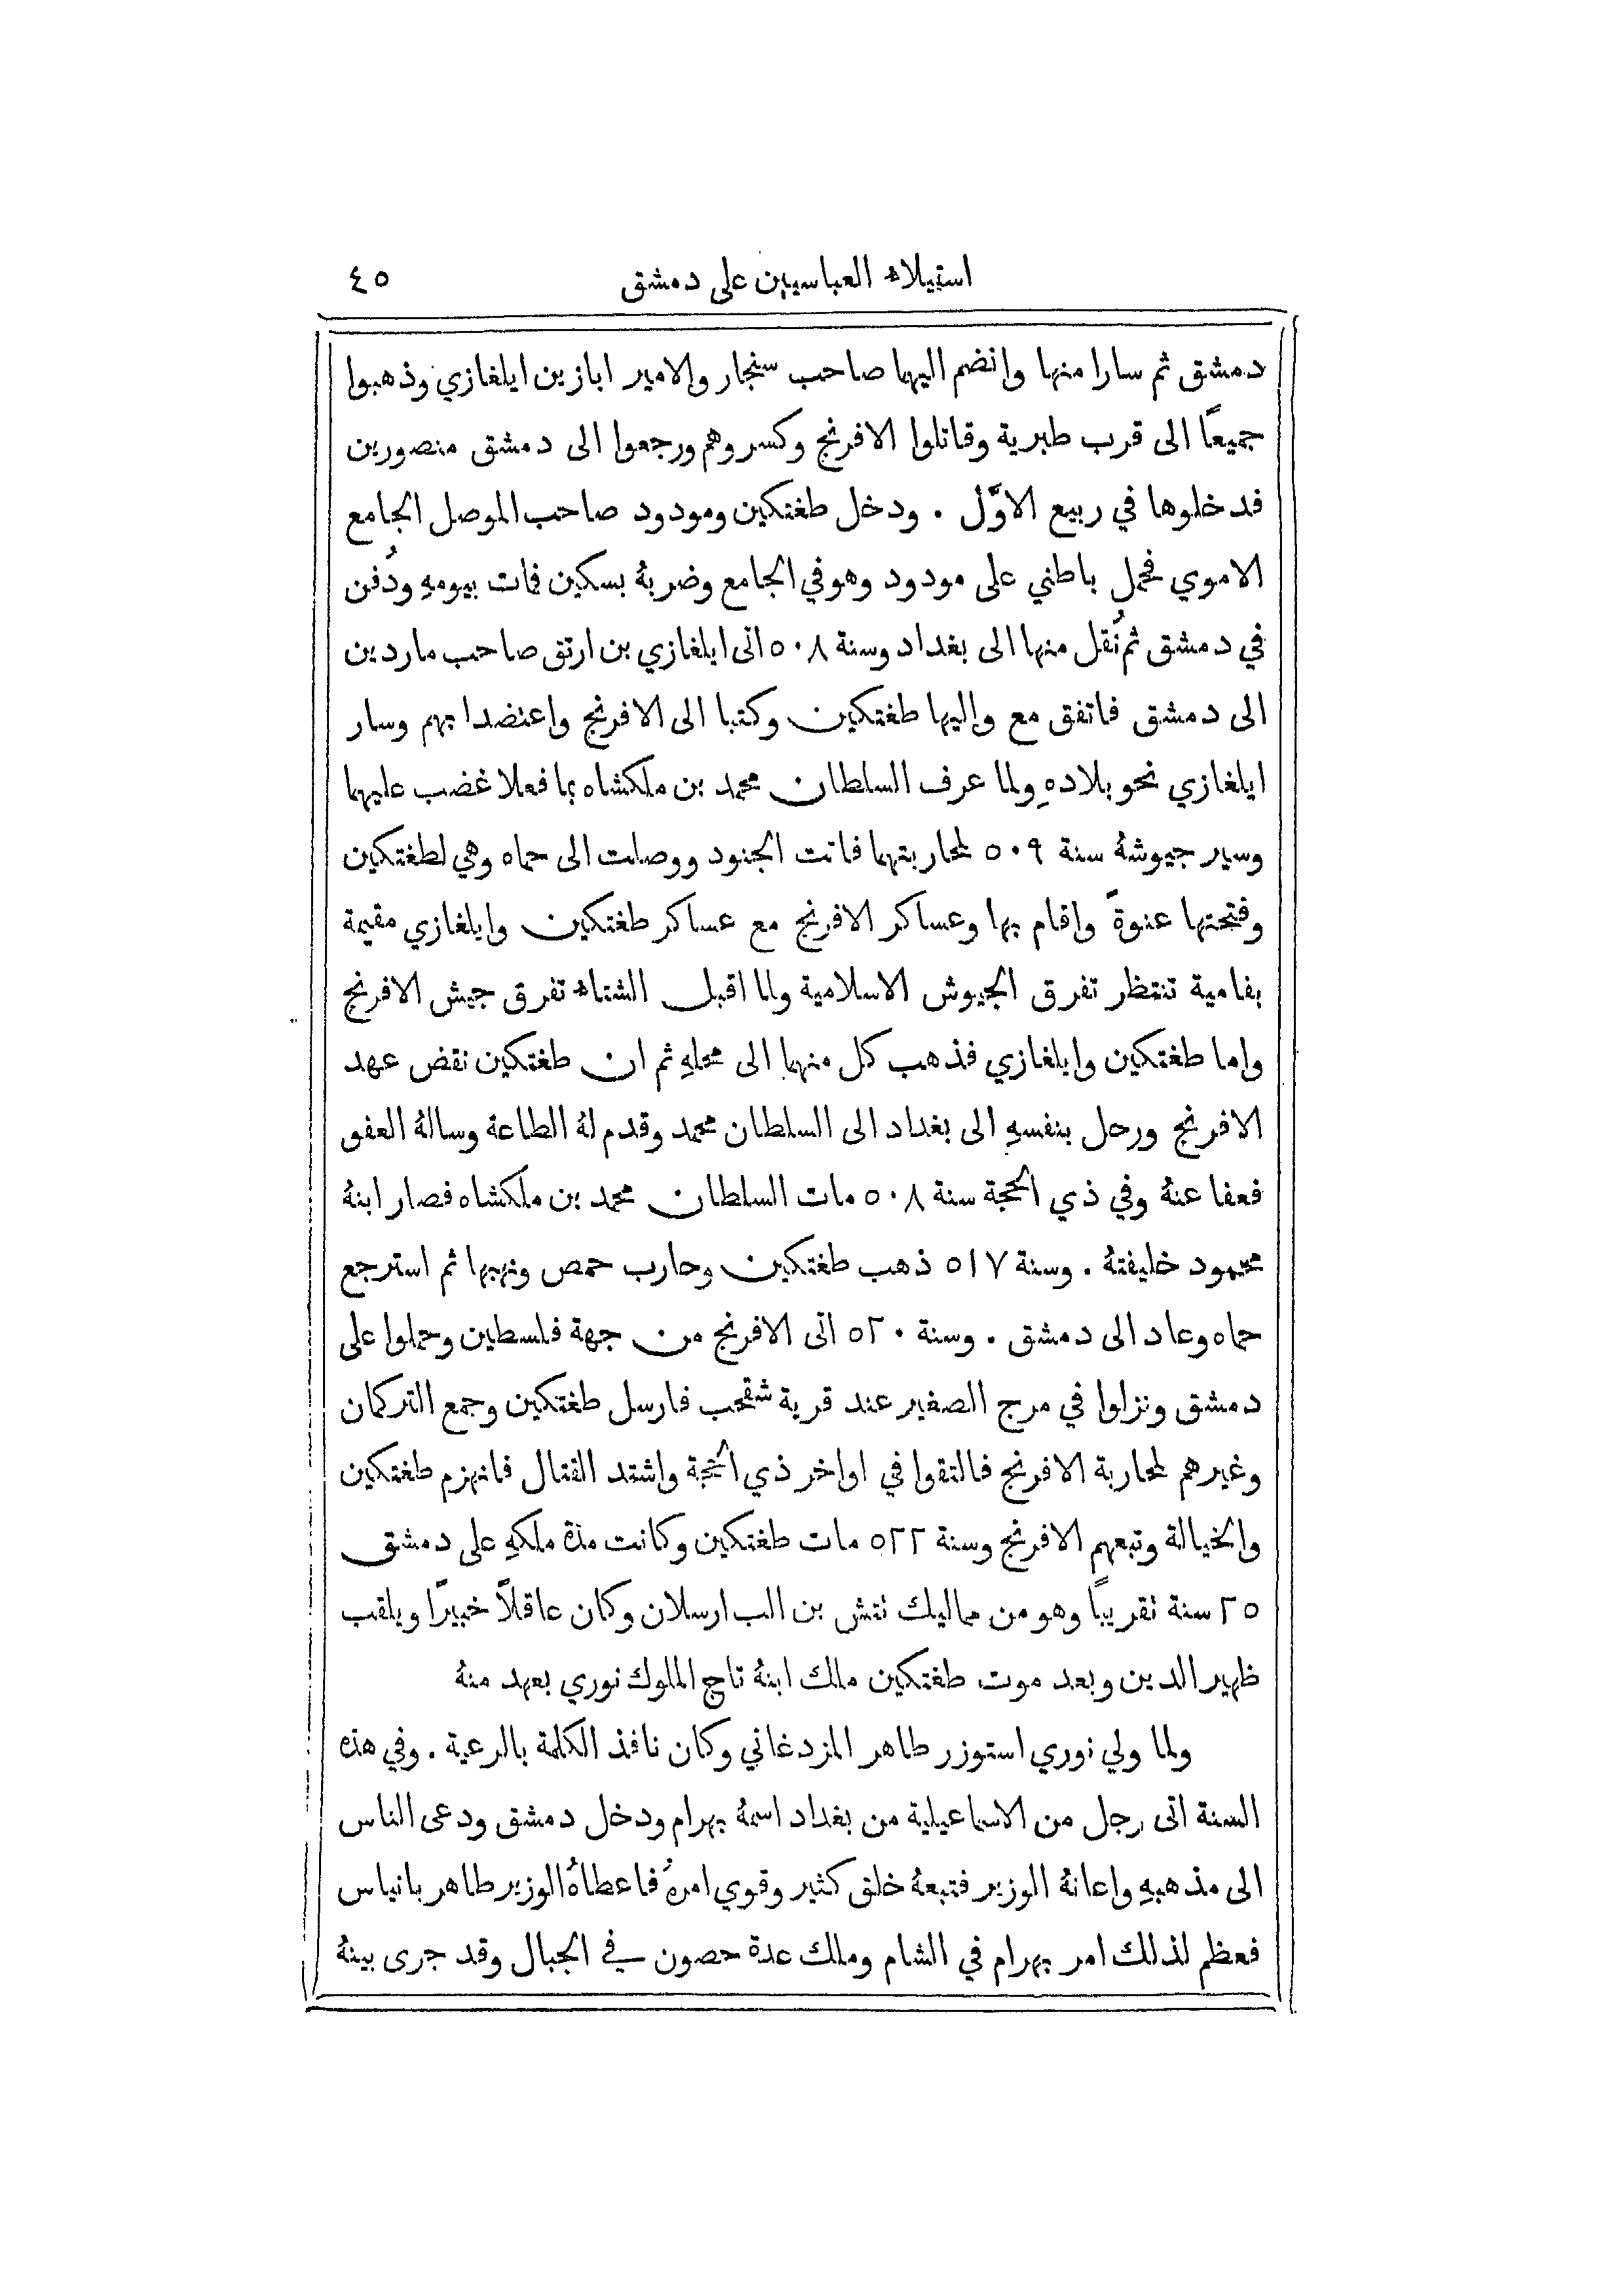 استيلاء العباسيين على دمشق ٤٥
دمشق ثم سارا منها وانضم اليهما صاحب سنجار والامير اباز بن ايلغازي وذهبوا
جميعًا الى قرب طبرية وقاتلوا الافرنج وكسروهم ورجعوا الى دمشق منصورين
فدخلوها في ربيع الاوَّل . ودخل طغتكين ومودود صاحب الموصل الجامع
الاموي فحمل باطني على مودود وهو في الجامع وضربهُ بسكين فمات بيومهِ ودُفن
في دمشق ثم نُقل منها الى بغداد وسنة ٥٠٨ اتى ايلغازي بن ارتق صاحب ماردين
الى دمشق فاتفق مع واليها طغتكين وكتبا الى الافرنج واعتضدا بهم وسار
ايلغازي نحو بلادهِ ولما عرف السلطان محمد بن ملكشاه بما فعلا غضب عليهما
وسير جيوشهُ سنة ٥٠٩ لمحاربتهما فاتت الجنود ووصلت الى حماه وهي لطغتكين
وفتحتها عنوةً واقام بها وعساكر الافرنج مع عساكر طغتكين وايلغازي مقيمة
بفامية تنتظر تفرق الجيوش الاسلامية ولما اقبل الشتاء تفرق جيش الافرنج
واما طغتكين وايلغازي فذهب كل منهما الى محلهِ ثم ان طغتكين نقض عهد
الافرنج ورحل بنفسهِ الى بغداد الى السلطان محمد وقدم لهُ الطاعة وسالهُ العفو
فعفا عنهُ وفي ذي الحجة سنة ٥٠٨ مات السلطان محمد بن ملكشاه فصار ابنهُ
محمود خليفتهُ . وسنة ٥١٧ ذهب طغتكين وحارب حمص ونهبها ثم استرجع
حماه وعاد الى دمشق . وسنة ٥٢٠ اتى الافرنج من جهة فلسطين وحملوا على
دمشق ونزلوا في مرج الصفير عند قرية شقحب فارسل طغتكين وجمع التركمان
وغيرهم لمحاربة الافرنج فالتقوا في اواخر ذي الحجة واشتد القتال فانهزم طغتكين
والخيالة وتبعهم الافرنج وسنة ٥٢٢ مات طغتكين وكانت مدة ملكهِ على دمشق
٢٥ سنة تقريبًا وهو من مماليك تتش بن الب ارسلان وكان عاقلاً خبيرًا ويلقب
ظهير الدين وبعد موت طغتكين ملك ابنهُ تاج الملوك نوري بعهد منهُ
ولما ولي نوري استوزر طاهر المزدغاني وكان نافذ الكلمة بالرعية . وفي هذه
السنة اتى رجل من الاسماعيلية من بغداد اسمهُ بهرام ودخل دمشق ودعى الناس
الى مذهبهِ واعانهُ الوزير فتبعهُ خلق كثير وقوي امرهُ فاعطاهُ الوزير طاهر بانياس
فعظم لذلك امر بهرام في الشام وملك عدة حصون في الجبال وقد جرى بينهُ